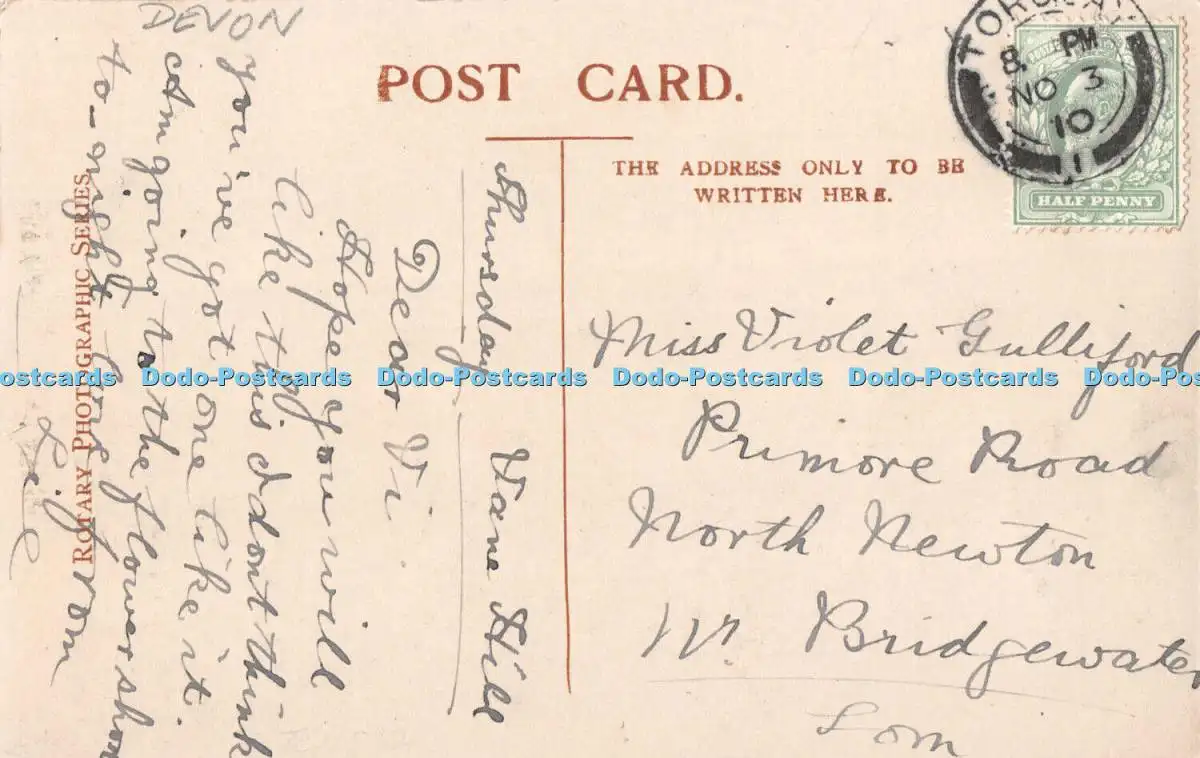 DEVON
POST CARD.
THE ADDRESS ONLY TO BE
WRITTEN HERE.
TORQUAY
8. PM
NO 3
10
1
HALF PENNY
Vane Hill
Thursday
Dear Vi.
Hope you will
like this I dont think
you've got one like it.
Am going to the flower show
to-night. Love from
Miss Violet Gulliford
Primore Road
North Newton
Nr. Bridgewater
Som
ROTARY PHOTOGRAPHIC SERIES
Dodo-Postcards Dodo-Postcards Dodo-Postcards Dodo-Postcards Dodo-Postcards Dodo-Postcards